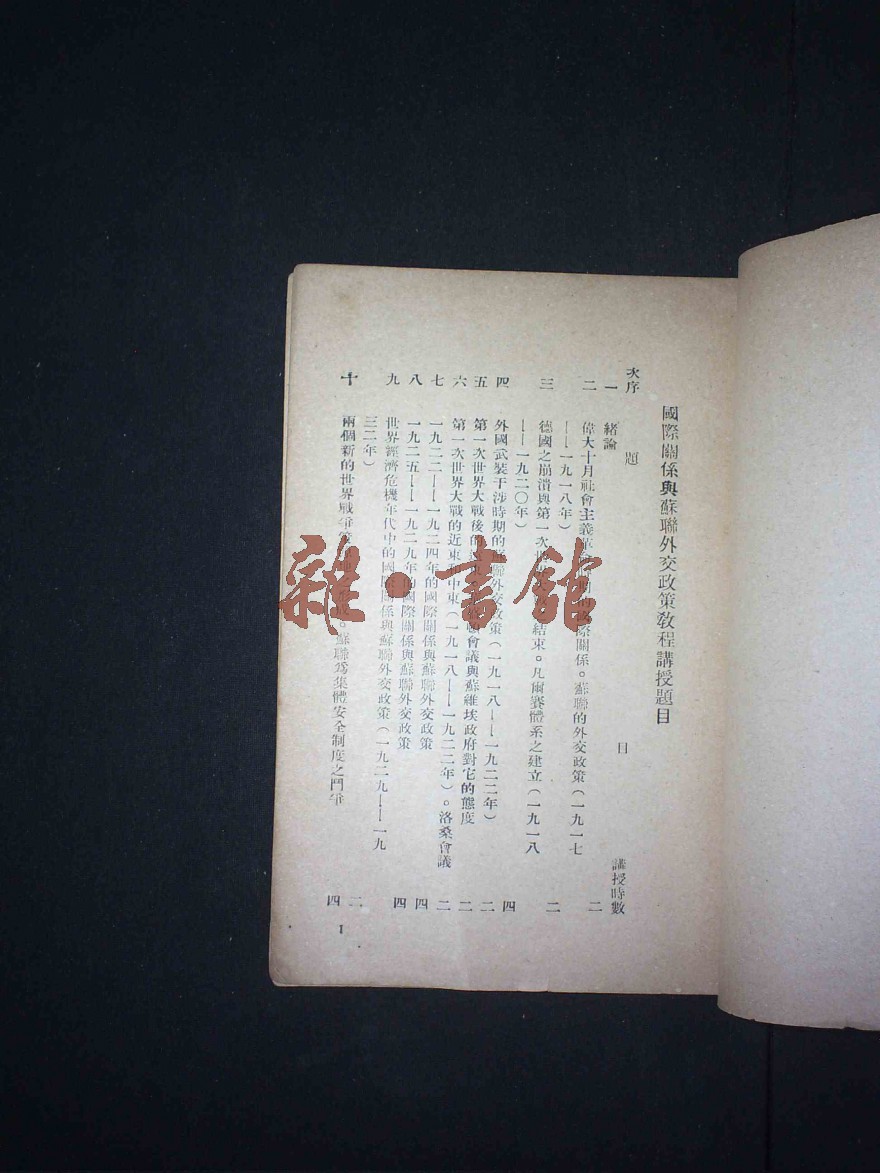 國際關係與蘇聯外交政策教程講授題目
次序 題 目 講授時數
一 緒論 二
二 偉大十月社會主義 期的 際關係。蘇聯的外交政策(一九一七
——一九一八年)
三 德國之崩潰與第一次世 結束。凡爾賽體系之建立(一九一八
——一九二〇年) 二
四 外國武裝干涉時期的 聯外交政策(一九一八——一九二二年) 四
五 第一次世界大戰後的 會議與蘇維埃政府對它的態度 二
六 第一次世界大戰的近東和中東(一九一八——一九二二年)。洛桑會議 二
七 一九二二——一九二四年的國際關係與蘇聯外交政策 二
八 一九二五——一九二九年的國際關係與蘇聯外交政策 四
九 世界經濟危機年代中的國際關係與蘇聯外交政策(一九二九——一九
三二年) 四
十 兩個新的世界戰爭 。蘇聯爲集體安全制度之鬥爭 二
四
1
雜·書館